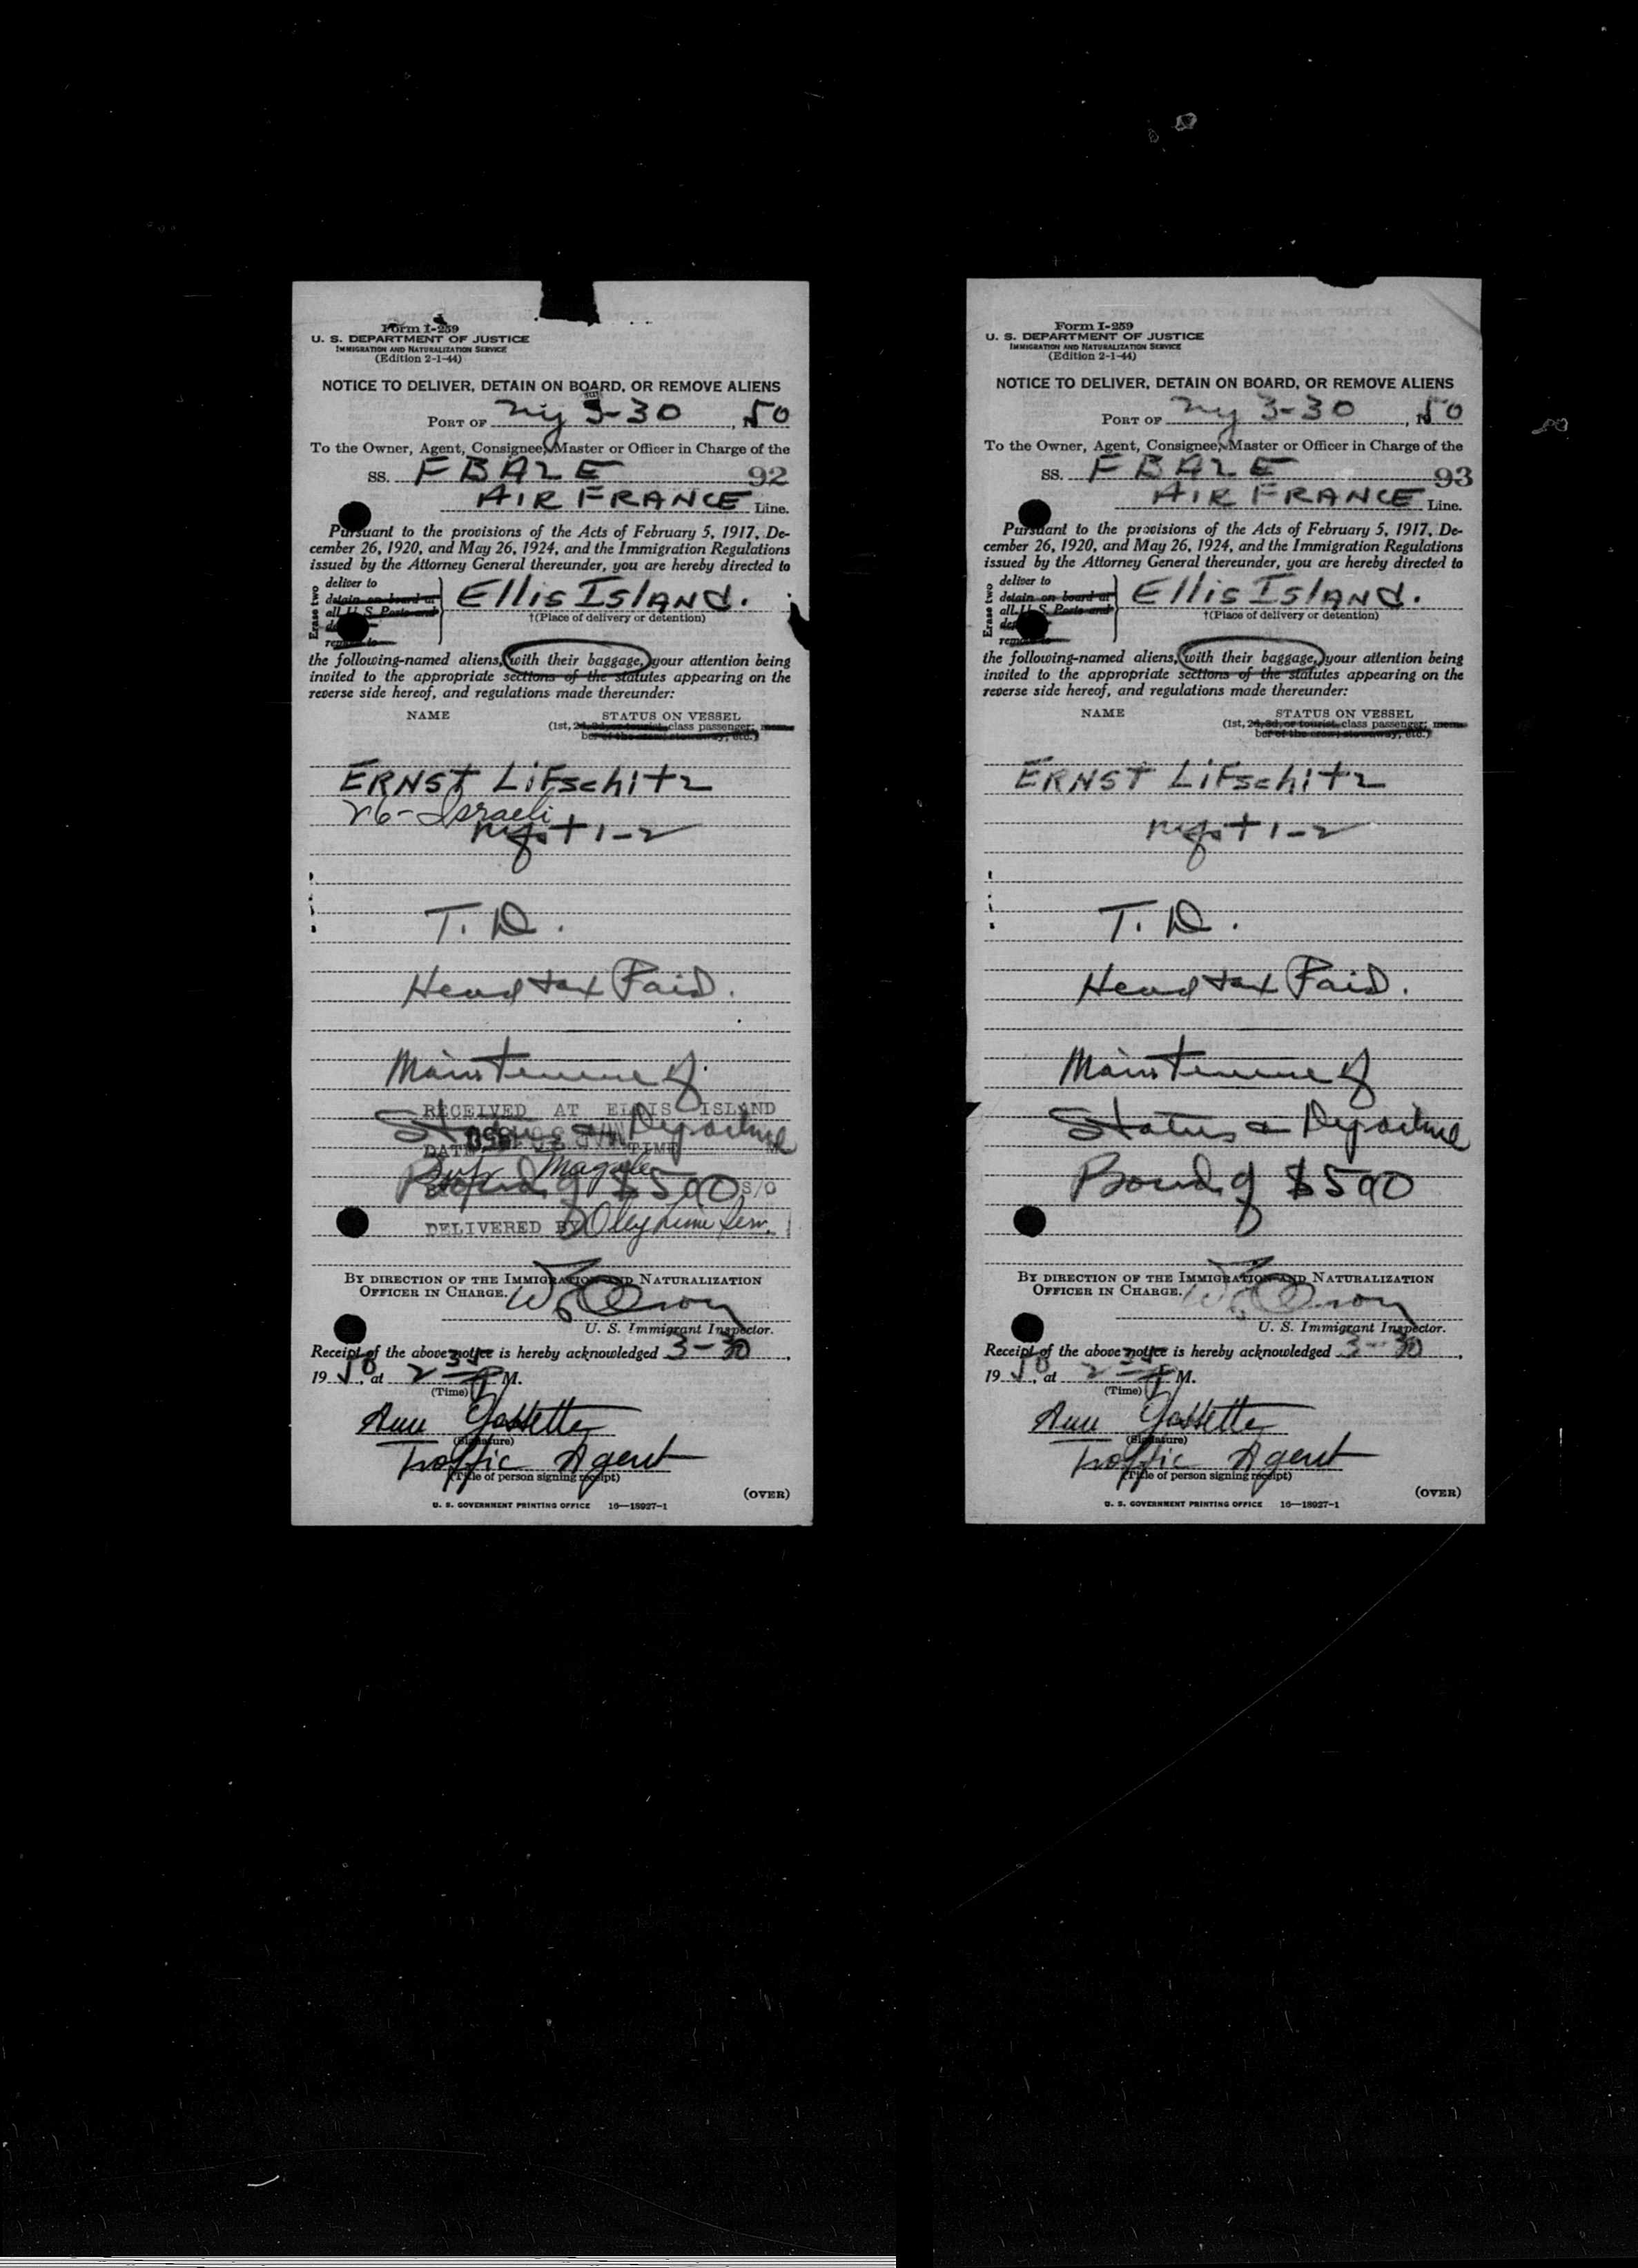 Form I-259
U. S. DEPARTMENT OF JUSTICE
IMMIGRATION AND NATURALIZATION SERVICE
(Edition 2-1-44)
NOTICE TO DELIVER, DETAIN ON BOARD, OR REMOVE ALIENS
PORT OF NY 3-30, 1950
To the Owner, Agent, Consignee, Master or Officer in Charge of the
SS. FBAZE 92
AIR FRANCE Line.
Pursuant to the provisions of the Acts of February 5, 1917, De-
cember 26, 1920, and May 26, 1924, and the Immigration Regulations
issued by the Attorney General thereunder, you are hereby directed to
Erase two
deliver to
detain on board at
all U. S. Ports and
remove to
Ellis Island.
†(Place of delivery or detention)
the following-named aliens, with their baggage, your attention being
invited to the appropriate sections of the statutes appearing on the
reverse side hereof, and regulations made thereunder:
NAME STATUS ON VESSEL
(1st, 2d, 3d, or tourist class passenger; mem-
ber of the crew; stowaway, etc.)
ERNST LiFschitz
26-Israeli
T. D.
Head tax Paid.
Maintenance of
RECEIVED AT ELLIS ISLAND
Status & Departure
DATE TIME M
Bond of $500 S/O
DELIVERED BY
BY DIRECTION OF THE IMMIGRATION AND NATURALIZATION
OFFICER IN CHARGE.
U. S. Immigrant Inspector.
Receipt of the above notice is hereby acknowledged 3-30,
1950, at 2 35 P M.
(Time)
Ann Gossette
(Signature)
Traffic Agent
(Title of person signing receipt)
(OVER)
U. S. GOVERNMENT PRINTING OFFICE 16—18927-1
Form I-259
U. S. DEPARTMENT OF JUSTICE
IMMIGRATION AND NATURALIZATION SERVICE
(Edition 2-1-44)
NOTICE TO DELIVER, DETAIN ON BOARD, OR REMOVE ALIENS
PORT OF NY 3-30, 1950
To the Owner, Agent, Consignee, Master or Officer in Charge of the
SS. FBAZE 93
AIR FRANCE Line.
Pursuant to the provisions of the Acts of February 5, 1917, De-
cember 26, 1920, and May 26, 1924, and the Immigration Regulations
issued by the Attorney General thereunder, you are hereby directed to
Erase two
deliver to
detain on board at
all U. S. Ports and
remove to
Ellis Island.
†(Place of delivery or detention)
the following-named aliens, with their baggage, your attention being
invited to the appropriate sections of the statutes appearing on the
reverse side hereof, and regulations made thereunder:
NAME STATUS ON VESSEL
(1st, 2d, 3d, or tourist class passenger; mem-
ber of the crew; stowaway, etc.)
ERNST LiFschitz
T. D.
Head tax Paid.
Maintenance of
Status & Departure
Bond of $500
BY DIRECTION OF THE IMMIGRATION AND NATURALIZATION
OFFICER IN CHARGE.
U. S. Immigrant Inspector.
Receipt of the above notice is hereby acknowledged 3-30,
1950, at 2 35 P M.
(Time)
Ann Gossette
(Signature)
Traffic Agent
(Title of person signing receipt)
(OVER)
U. S. GOVERNMENT PRINTING OFFICE 16—18927-1